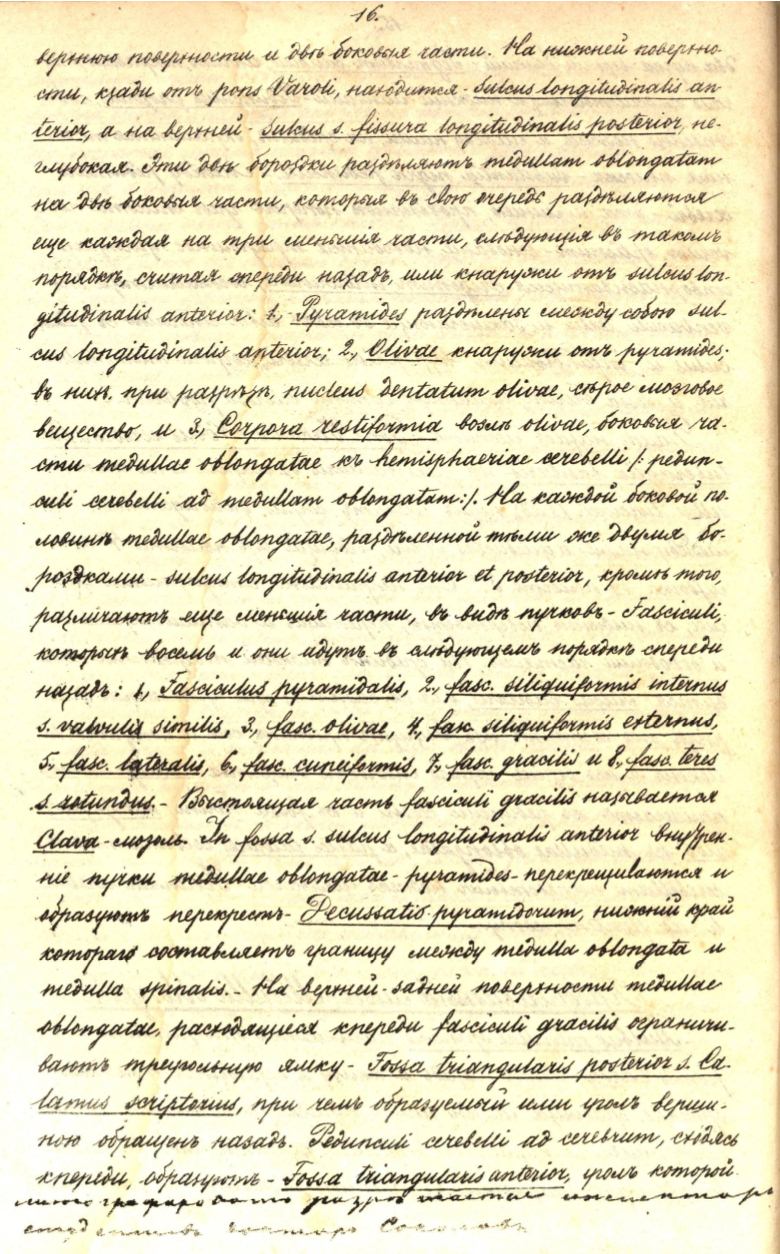 16.
верхнюю поверхности и двѣ боковыя части. На нижней поверхно-
сти, кзади отъ pons Varoli, находится - Sulcus longitudinalis an-
terior, а на верхней - Sulcus s. fissura longitudinalis posterior, не-
глубокая. Эти двѣ бороздки раздѣляютъ medullam oblongatam
на двѣ боковыя части, которыя въ свою очередь раздѣляются
еще каждая на три меньшія части, слѣдующія въ такомъ
порядкѣ, считая спереди назадъ, или кнаружи отъ sulcus lon-
gitudinalis anterior: 1, Pyramides раздѣлены между собою sul-
cus longitudinalis anterior; 2, Olivae кнаружи отъ pyramides;
въ нихъ при разрѣзѣ, nucleus dentatum olivae, сѣрое мозговое
вещество, и 3, Corpora restiformia возлѣ olivae, боковыя ча-
сти medullae oblongatae къ hemisphaeriae cerebelli /: pedun-
culi cerebelli ad medullam oblongatam:/. На каждой боковой по-
ловинѣ medullae oblongatae, раздѣленной тѣми же двумя бо-
роздками - sulcus longitudinalis anterior et posterior, кромѣ того,
различаютъ еще меньшія части, въ видѣ пучковъ - Fasciculi,
которыхъ восемь и они идутъ въ слѣдующемъ порядкѣ спереди
назадъ: 1, Fasciculus pyramidalis, 2, fasc. siliquiformis internus
s. valvulis similis, 3, fasc. olivae, 4, fasc. siliquiformis externus,
5, fasc. lateralis, 6, fasc. cuneiformis, 7, fasc. gracilis и 8, fasc. teres
s. rotundus. - Выстоящая часть fasciculi gracilis называется
Clava - мозоль. In fossa s. sulcus longitudinalis anterior внутрен-
ніе пучки medullae oblongatae - pyramides - перекрещиваются и
образуютъ перекрестъ - Decussatis pyramidorum, нижній край
котораго составляетъ границу между medulla oblongata и
medulla spinalis. - На верхней-задней поверхности medullae
oblongatae, расходящіеся кпереди fasciculi gracilis ограничи-
ваютъ треугольную ямку - Fossa triangularis posterior s. Ca-
lamus scriptorius, при чемъ образуемый ими уголъ верши-
ною обращенъ назадъ. Pedunculi cerebelli ad cerebrum, сходясь
кпереди, образуютъ - Fossa triangularis anterior, уголъ которой